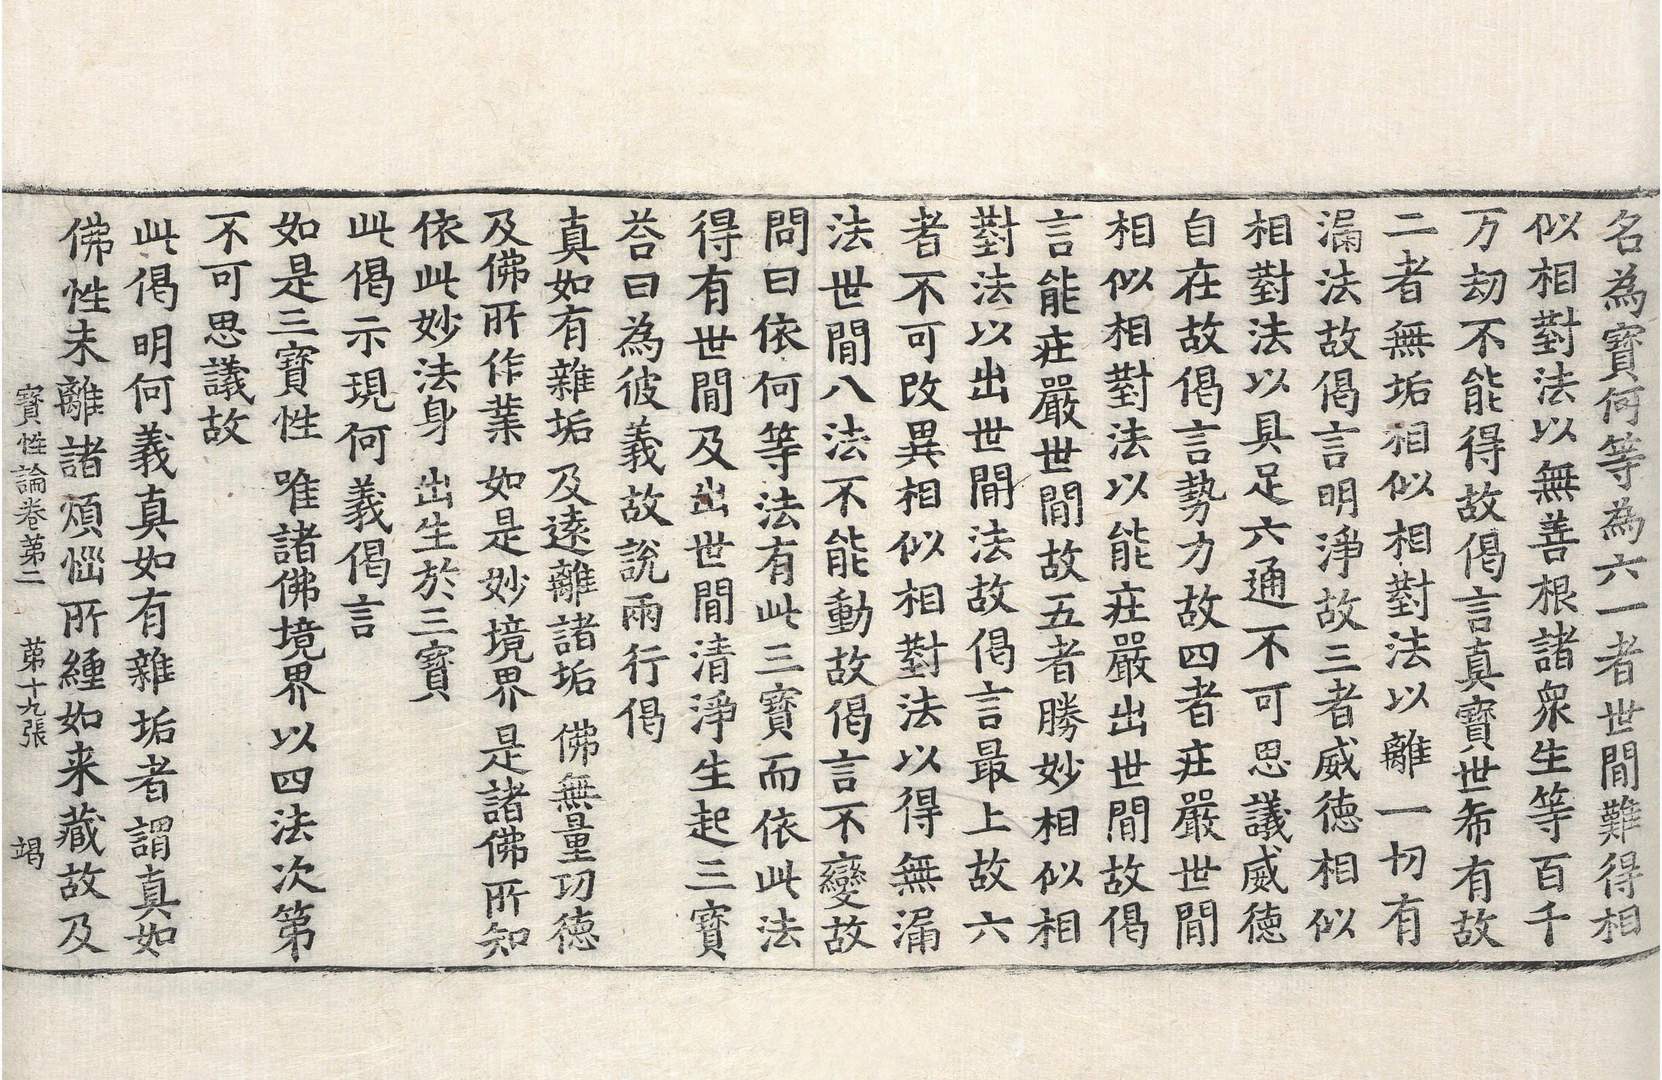 名為寶何等為六一者世間難得相
似相對法以無善根諸衆生等百千
万劫不能得故偈言真寶世希有故
二者無垢相似相對法以離一切有
漏法故偈言明淨故三者威德相似
相對法以具足六通不可思議威德
自在故偈言勢力故四者莊嚴世間
相似相對法以能莊嚴出世間故偈
言能莊嚴世間故五者勝妙相似相
對法以出世間法故偈言最上故六
者不可改異相似相對法以得無漏
法世間八法不能動故偈言不變故
問曰依何等法有此三寶而依此法
得有世間及出世間清淨生起三寶
荅曰為彼義故說兩行偈
真如有雜垢 及遠離諸垢 佛無量功德
及佛所作業 如是妙境界 是諸佛所知
依此妙法身 出生於三寶
此偈示現何義偈言
如是三寶性 唯諸佛境界 以四法次第
不可思議故
此偈明何義真如有雜垢者謂真如
佛性未離諸煩惱所纏如来藏故及
寶性論卷第二 第十九張 竭